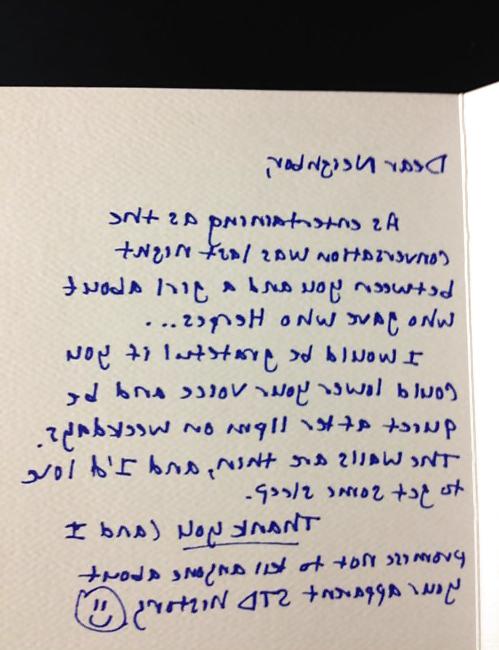 Dear Neighbor,
As entertaining as the
conversation was last night
between you and a girl about
who gave who Herpes...
I would be grateful if you
could lower your voice and be
quiet after 11pm on weekdays.
The walls are thin, and I'd love
to get some sleep.
Thank you (and I
promise not to tell anyone about
your apparent STD history)